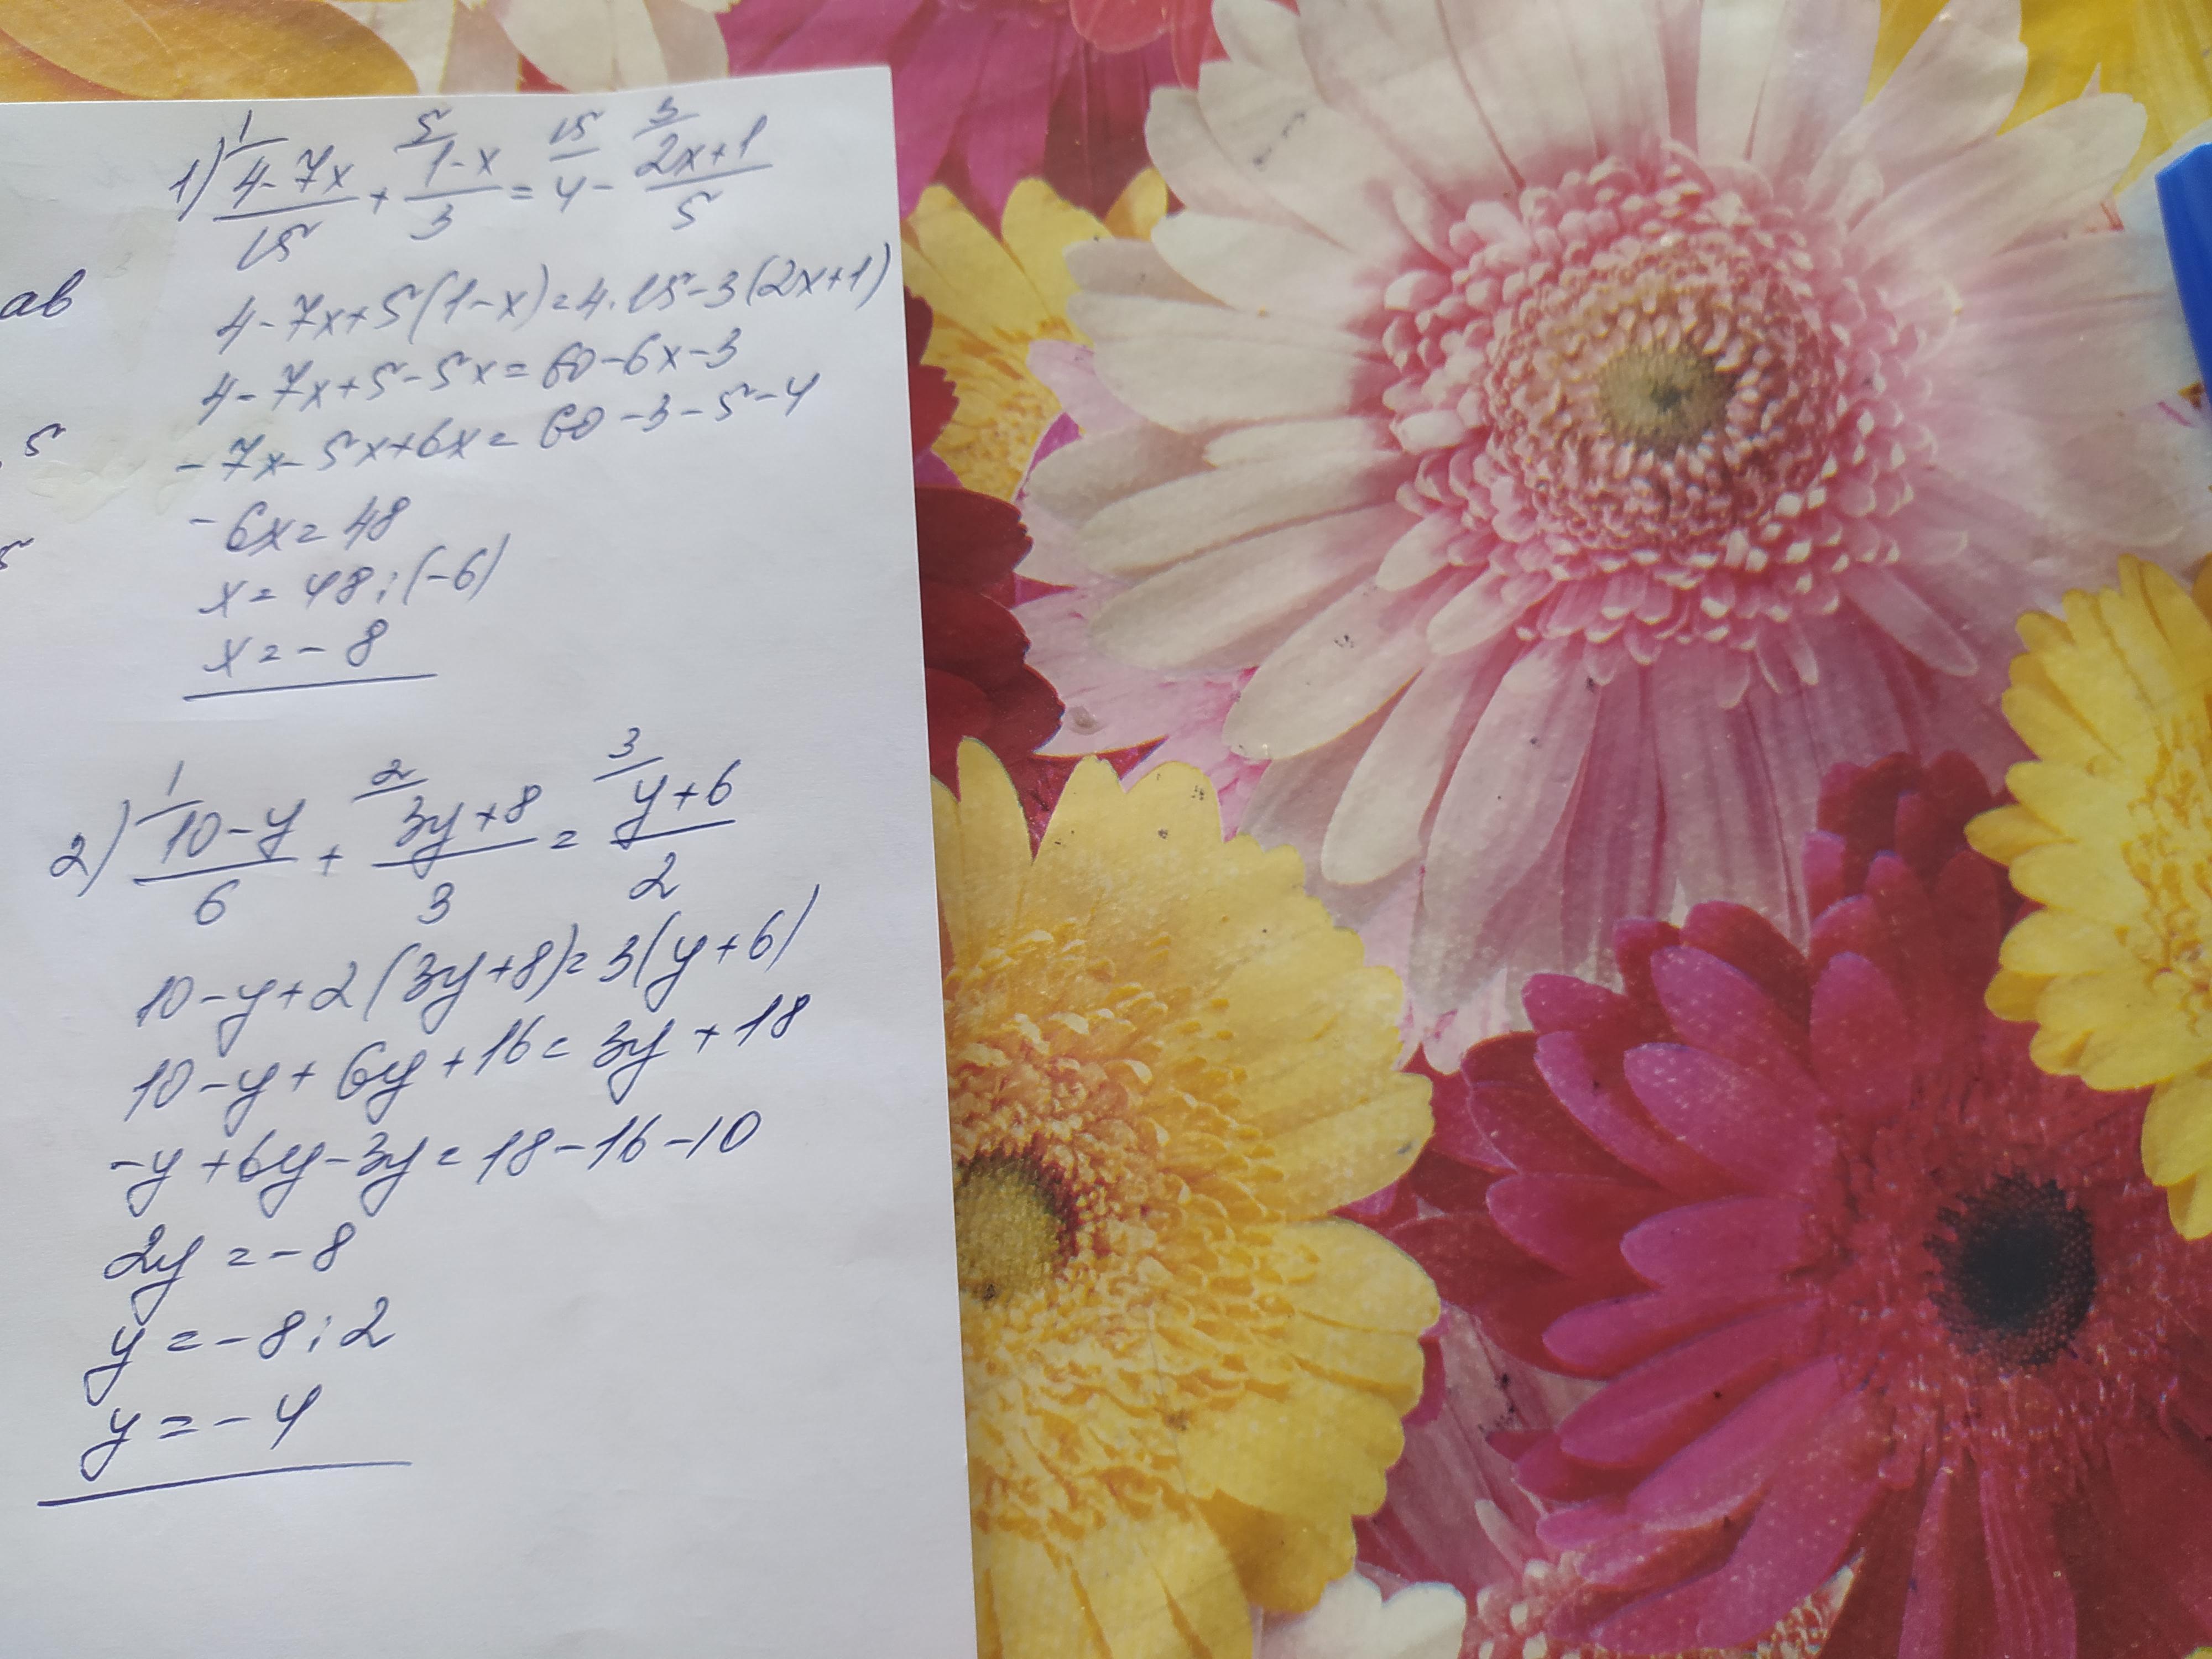 ab
, 5
5
1) ¹/(4-7x)/15 + ⁵/(1-x)/3 = ¹⁵/4 - ³/(2x+1)/5
4-7x+5(1-x)=4·15-3(2x+1)
4-7x+5-5x=60-6x-3
-7x-5x+6x=60-3-5-4
-6x=48
x=48:(-6)
x=-8
2) ¹/(10-y)/6 + ²/(3y+8)/3 = ³/(y+6)/2
10-y+2(3y+8)=3(y+6)
10-y+6y+16=3y+18
-y+6y-3y=18-16-10
2y=-8
y=-8:2
y=-4